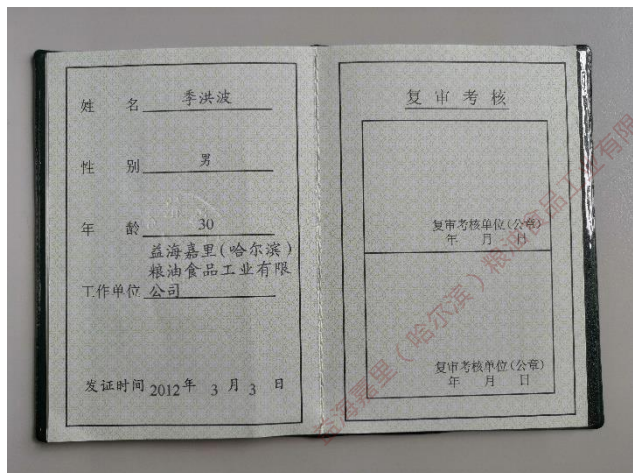 姓 名 季洪波
性 别 男
年 龄 30
益海嘉里(哈尔滨)
粮油食品工业有限
工作单位 公司
发证时间 2012年 3 月 3 日
复审考核
复审考核单位(公章)
年 月 日
复审考核单位(公章)
年 月 日
益海嘉里(哈尔滨)粮油食品工业有限